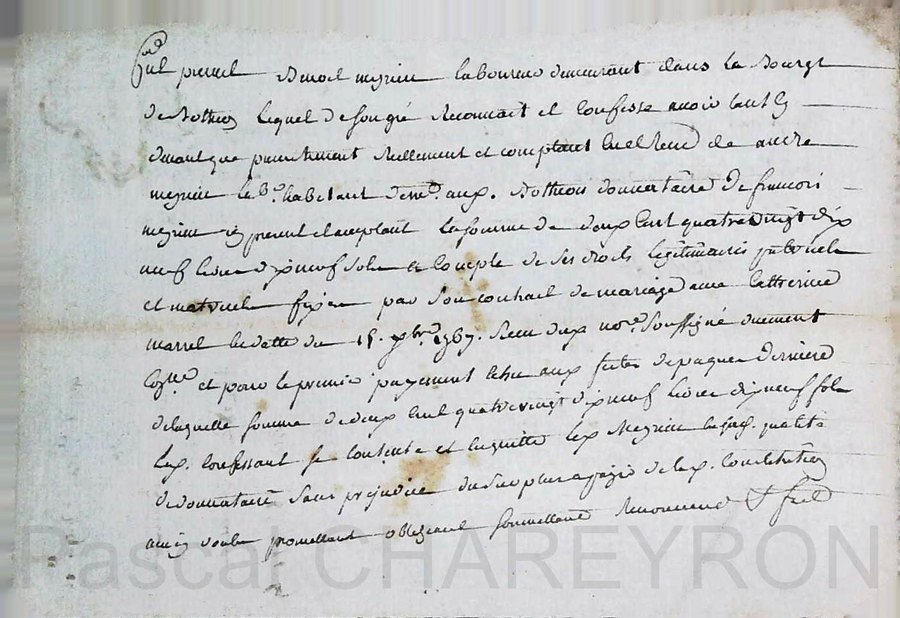 fut présent Benoit meyrieu laboureur demeurant dans le Bourgt
de Bothieu lequel de son gré reconnait et confesse avoir tant cy
devant que presentement reellement et comptant eu et receu de andré
meyrieu le B. habitant aux. Bothieu donnataire de francois
meyrieu icy present et acceptant la somme de deux cent quatre vingt dix
neuf livre dixneuf sols a compte de ses droits legitimaires paternels
et maternels fixée par son contrait de mariage avec catherine
marrel en datte du 15. xbre 1767. Receu no.re soussigné duement
et pour le premier payement echu aux fettes de paques derniere
de laquelle somme de deux cent quatre vingt dixneuf livre dixneuf sols
confessant se contente et en quitte led. Meyrieu qualité
de donnataire sans prejudice du surplus
ainsy voulu promettant obligeant soumettant renonceant &. fait
Pascal CHAREYRON